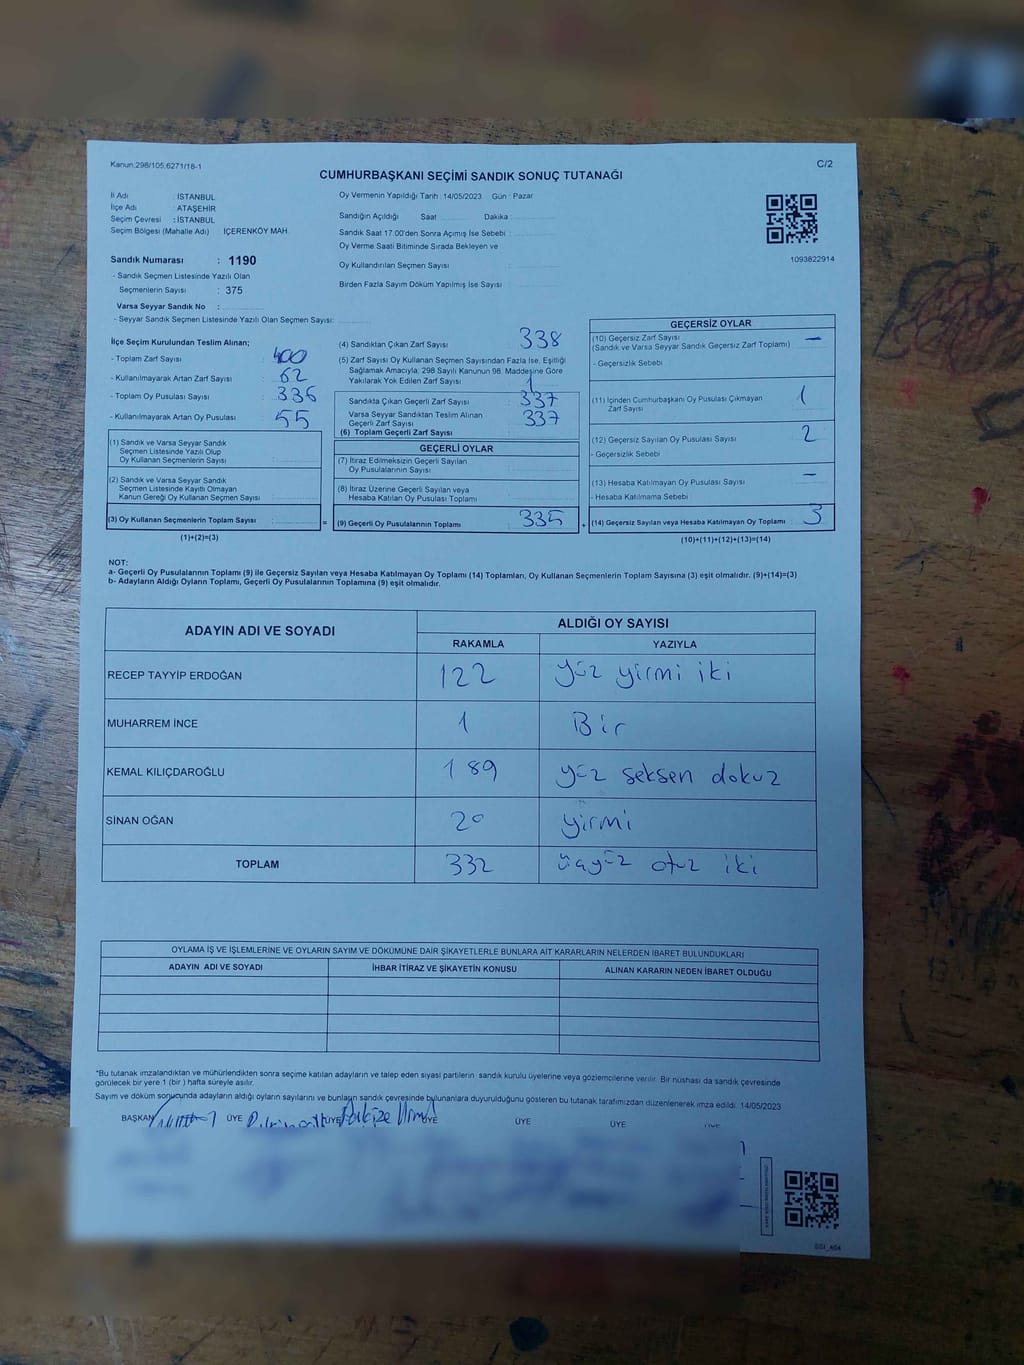 Kanun:298/105;6271/18-1
C/2
CUMHURBAŞKANI SEÇİMİ SANDIK SONUÇ TUTANAĞI
İl Adı : İSTANBUL
İlçe Adı : ATAŞEHİR
Seçim Çevresi : İSTANBUL
Seçim Bölgesi (Mahalle Adı) : İÇERENKÖY MAH.
Sandık Numarası : 1190
- Sandık Seçmen Listesinde Yazılı Olan
Seçmenlerin Sayısı : 375
Varsa Seyyar Sandık No :
- Seyyar Sandık Seçmen Listesinde Yazılı Olan Seçmen Sayısı:
Oy Vermenin Yapıldığı Tarih : 14/05/2023 Gün : Pazar
Sandığın Açıldığı Saat Dakika
Sandık Saat 17.00'den Sonra Açımış İse Sebebi :
Oy Verme Saati Bitiminde Sırada Bekleyen ve
Oy Kullandırılan Seçmen Sayısı :
Birden Fazla Sayım Döküm Yapılmış İse Sayısı :
1093822914
İlçe Seçim Kurulundan Teslim Alınan;
- Toplam Zarf Sayısı : 400
- Kullanılmayarak Artan Zarf Sayısı : 62
- Toplam Oy Pusulası Sayısı : 336
- Kullanılmayarak Artan Oy Pusulası : 55
(1) Sandık ve Varsa Seyyar Sandık
Seçmen Listesinde Yazılı Olup
Oy Kullanan Seçmenlerin Sayısı :
(2) Sandık ve Varsa Seyyar Sandık
Seçmen Listesinde Kayıtlı Olmayan
Kanun Gereği Oy Kullanan Seçmen Sayısı :
(3) Oy Kullanan Seçmenlerin Toplam Sayısı :
(1)+(2)=(3)
=
(4) Sandıktan Çıkan Zarf Sayısı : 338
(5) Zarf Sayısı Oy Kullanan Seçmen Sayısından Fazla İse, Eşitliği
Sağlamak Amacıyla, 298 Sayılı Kanunun 98. Maddesine Göre
Yakılarak Yok Edilen Zarf Sayısı 1
Sandıkta Çıkan Geçerli Zarf Sayısı : 337
Varsa Seyyar Sandıktan Teslim Alınan
Geçerli Zarf Sayısı : 337
(6) Toplam Geçerli Zarf Sayısı
GEÇERLİ OYLAR
(7) İtiraz Edilmeksizin Geçerli Sayılan
Oy Pusulalarının Sayısı :
(8) İtiraz Üzerine Geçerli Sayılan veya
Hesaba Katılan Oy Pusulası Toplamı :
(9) Geçerli Oy Pusulalarının Toplamı : 335
+
GEÇERSİZ OYLAR
(10) Geçersiz Zarf Sayısı : —
(Sandık ve Varsa Seyyar Sandık Geçersiz Zarf Toplamı)
- Geçersizlik Sebebi
(11) İçinden Cumhurbaşkanı Oy Pusulası Çıkmayan
Zarf Sayısı : 1
(12) Geçersiz Sayılan Oy Pusulası Sayısı : 2
- Geçersizlik Sebebi
(13) Hesaba Katılmayan Oy Pusulası Sayısı : —
- Hesaba Katılmama Sebebi
(14) Geçersiz Sayılan veya Hesaba Katılmayan Oy Toplamı : 3
(10)+(11)+(12)+(13)=(14)
NOT:
a- Geçerli Oy Pusulalarının Toplamı (9) ile Geçersiz Sayılan veya Hesaba Katılmayan Oy Toplamı (14) Toplamları, Oy Kullanan Seçmenlerin Toplam Sayısına (3) eşit olmalıdır. (9)+(14)=(3)
b- Adayların Aldığı Oyların Toplamı, Geçerli Oy Pusulalarının Toplamına (9) eşit olmalıdır.
ADAYIN ADI VE SOYADI
ALDIĞI OY SAYISI
RAKAMLA YAZIYLA
RECEP TAYYİP ERDOĞAN 122 yüz yirmi iki
MUHARREM İNCE 1 Bir
KEMAL KILIÇDAROĞLU 189 yüz seksen dokuz
SİNAN OĞAN 20 yirmi
TOPLAM 332 üçyüz otuz iki
OYLAMA İŞ VE İŞLEMLERİNE VE OYLARIN SAYIM VE DÖKÜMÜNE DAİR ŞİKAYETLERLE BUNLARA AİT KARARLARIN NELERDEN İBARET BULUNDUKLARI
ADAYIN ADI VE SOYADI İHBAR İTİRAZ VE ŞİKAYETİN KONUSU ALINAN KARARIN NEDEN İBARET OLDUĞU
"Bu tutanak imzalandıktan ve mühürlendikten sonra seçime katılan adayların ve talep eden siyasi partilerin sandık kurulu üyelerine veya gözlemcilerine verilir. Bir nüshası da sandık çevresinde
görülecek bir yere 1 (bir) hafta süreyle asılır.
Sayım ve döküm sonucunda adayların aldığı oyların sayılarını ve bunların sandık çevresinde bulunanlara duyurulduğunu gösteren bu tutanak tarafımızdan düzenlenerek imza edildi. 14/05/2023
BAŞKAN ÜYE ÜYE ÜYE ÜYE ÜYE